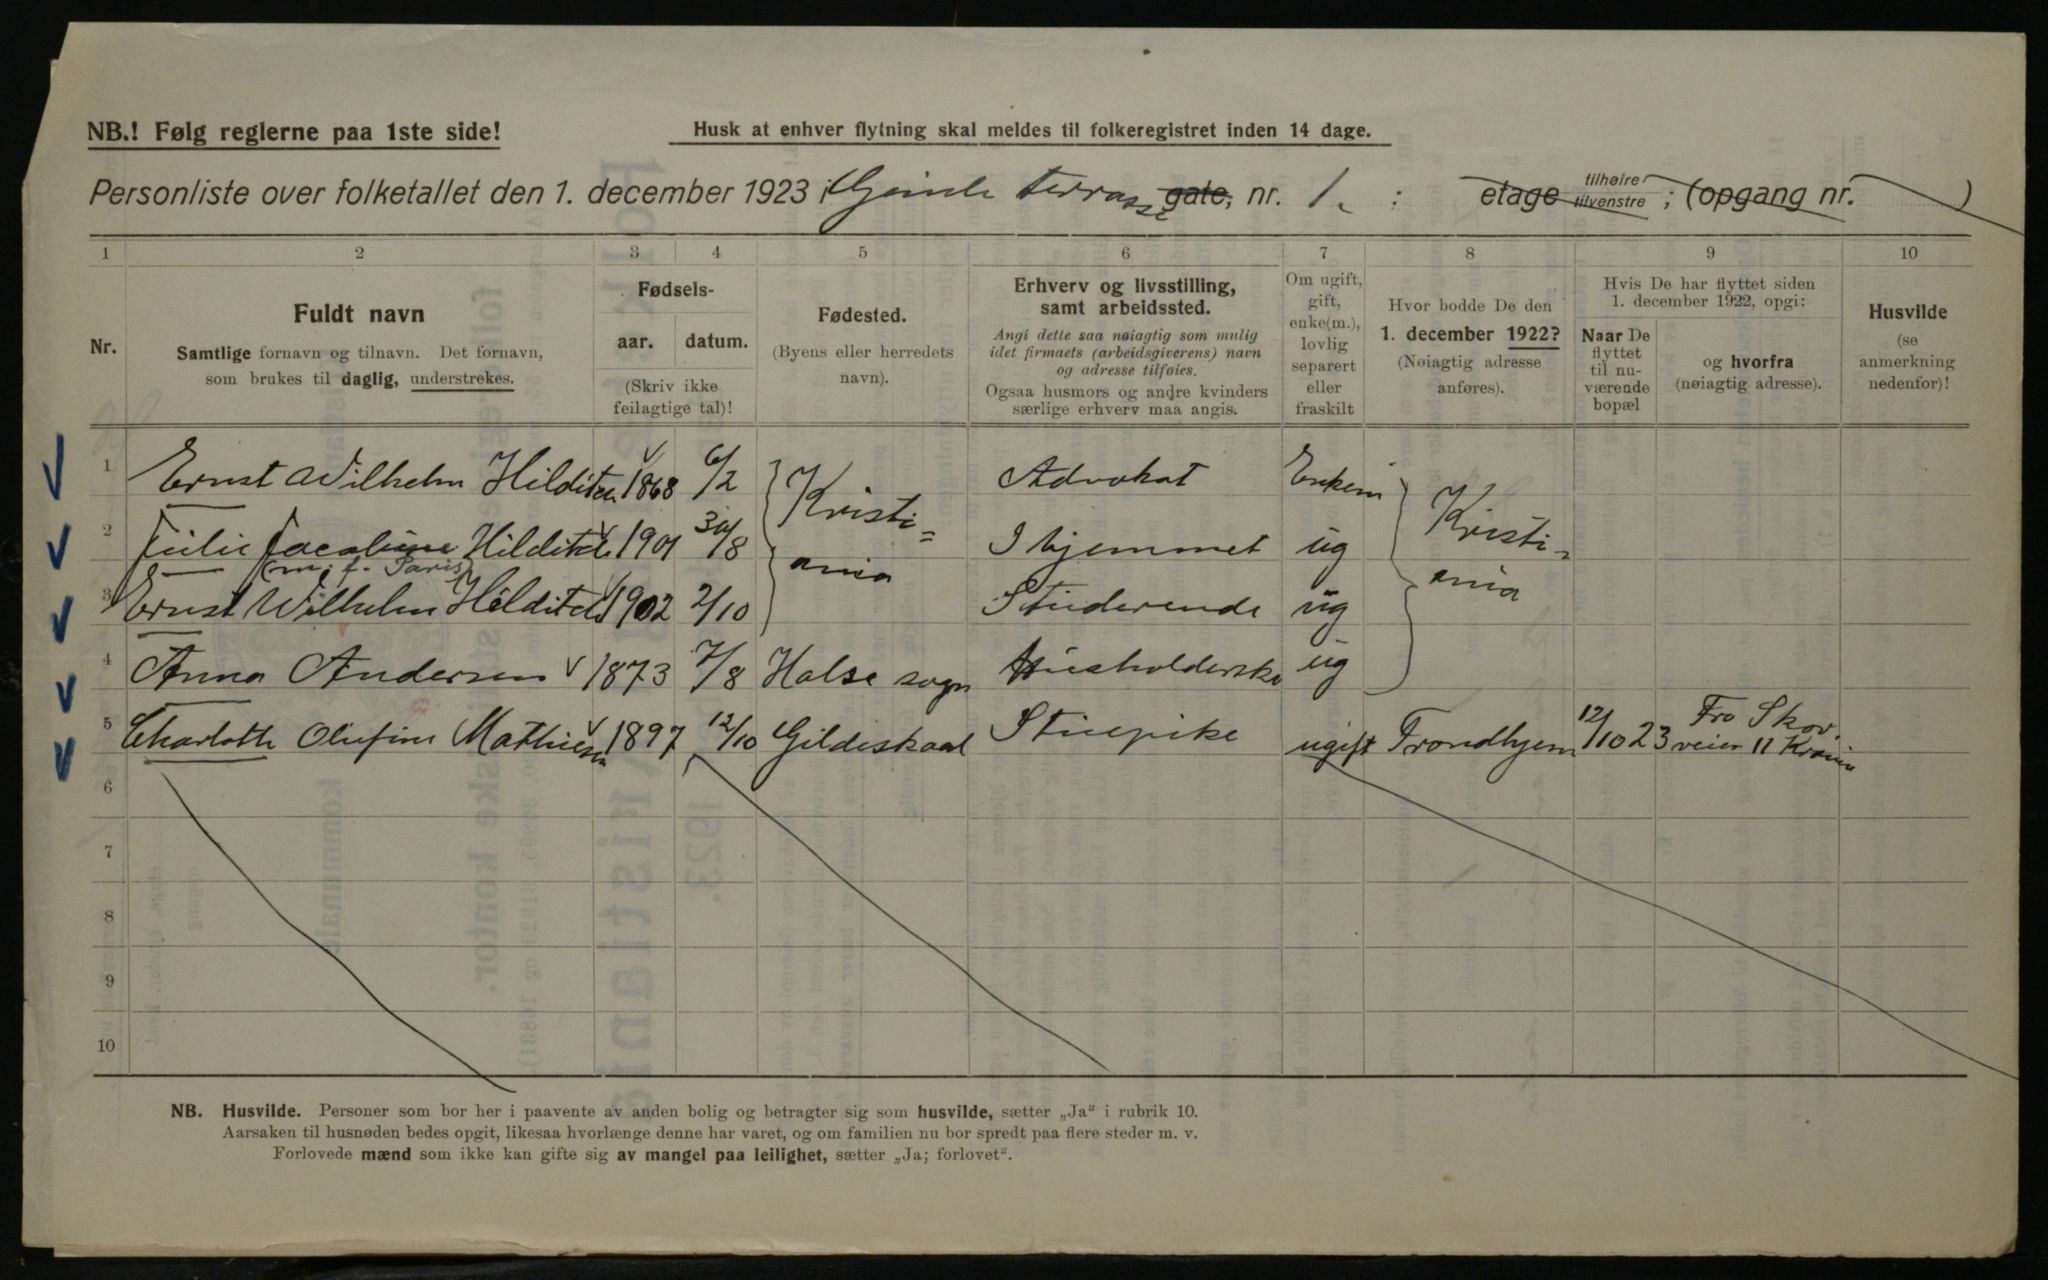 NB.! Følg reglerne paa 1ste side!
Husk at enhver flytning skal meldes til folkeregistret inden 14 dage.
Personliste over folketallet den 1. december 1923 i Gimle terrasse gate, nr. 1. : etage tilhøire tilvenstre ; (opgang nr. )
1 2 3 4 5 6 7 8 9 10
Nr.
Fuldt navn
Samtlige fornavn og tilnavn. Det fornavn,
som brukes til daglig, understrekes.
Fødsels-
aar. datum.
(Skriv ikke
feilagtige tal)!
Fødested.
(Byens eller herredets
navn).
Erhverv og livsstilling,
samt arbeidssted.
Angi dette saa nøiagtig som mulig
idet firmaets (arbeidsgiverens) navn
og adresse tilføies.
Ogsaa husmors og andre kvinders
særlige erhverv maa angis.
Om ugift,
gift,
enke(m.),
lovlig
separert
eller
fraskilt
Hvor bodde De den
1. december 1922?
(Nøiagtig adresse
anføres).
Hvis De har flyttet siden
1. december 1922, opgi:
Naar De
flyttet
til nu-
værende
bopæl
og hvorfra
(nøiagtig adresse).
Husvilde
(se
anmerkning
nedenfor)!
1 Ernst Wilhelm Hilditch 1868 6/2 Kristi= Advokat Enkem Kristi=
2 Julie Jacobine Hilditch 1901 30/8 ania I hjemmet ug ania
(m. f. Paris)
3 Ernst Wilhelm Hilditch 1902 2/10 Studerende ug
4 Anna Andersen 1873 7/8 Halse sogn Husholderske ug
5 Charlotte Olufine Mathiesen 1897 12/10 Gildeskaal Stuepike ugift Trondhjem 12/10 23 Fra Skov.
veien 11 Krania
6
7
8
9
10
NB. Husvilde. Personer som bor her i paavente av anden bolig og betragter sig som husvilde, sætter „Ja“ i rubrik 10.
Aarsaken til husnøden bedes opgit, likesaa hvorlænge denne har varet, og om familien nu bor spredt paa flere steder m. v.
Forlovede mænd som ikke kan gifte sig av mangel paa leilighet, sætter „Ja; forlovet“.